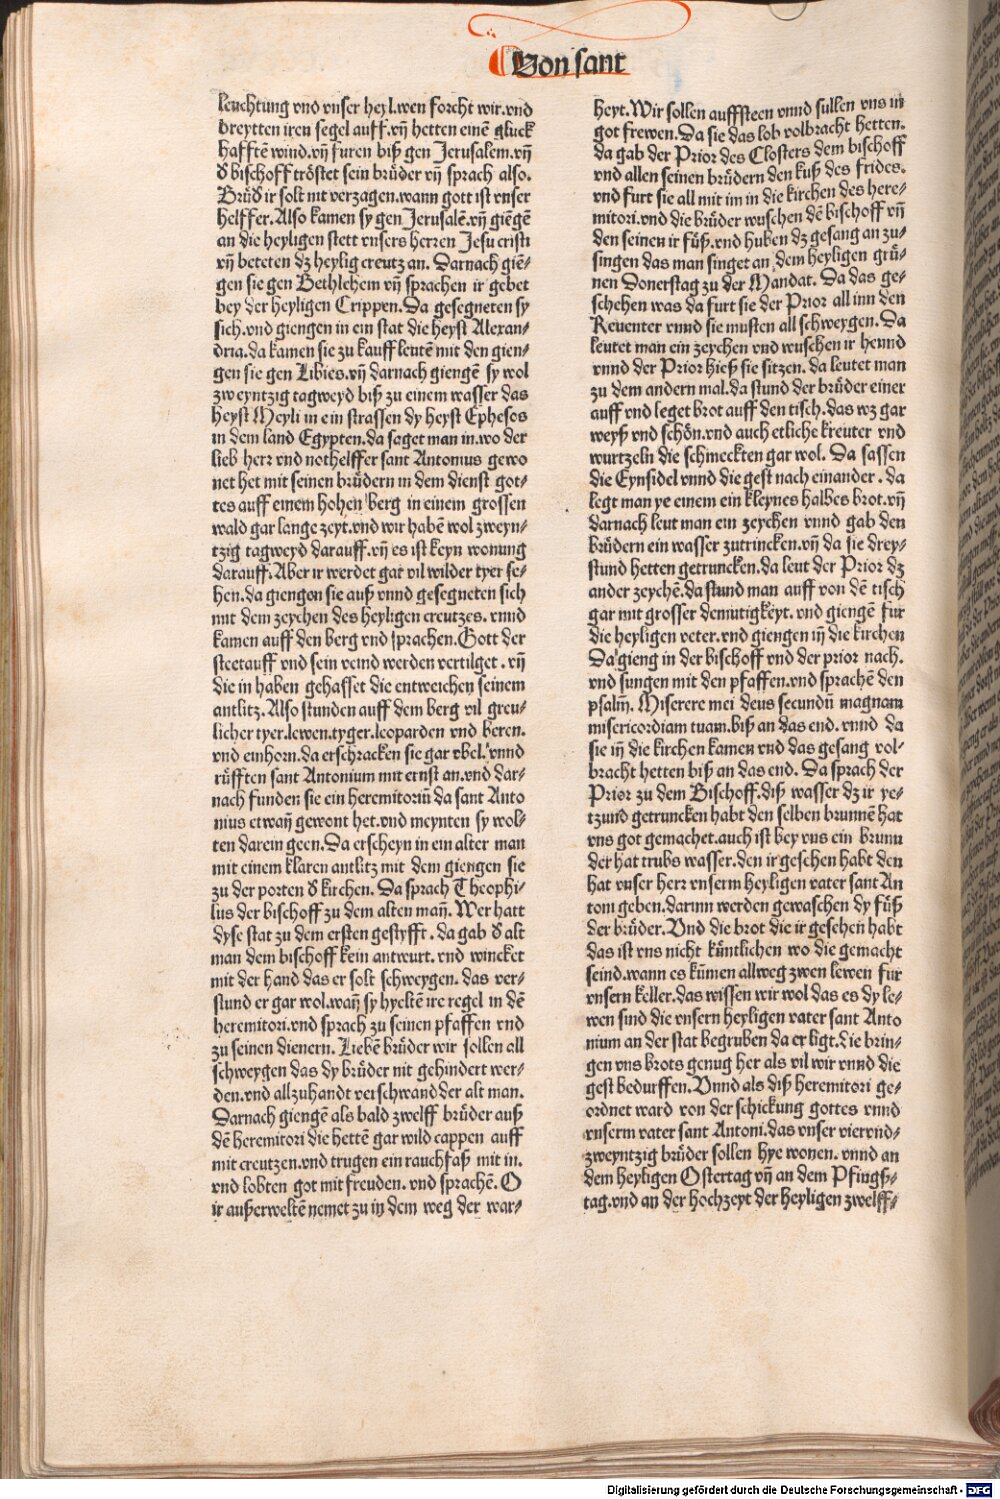 Von sant
leuchtung vnd vnser heyl.wen forcht wir.vnd
breytten iren segel auff.vñ hetten einē gluck
hafftē wind.vñ furen biß gen Jerusalem.vñ
d bischoff tröstet sein brüder vñ sprach also.
Brüd ir solt nit verzagen.wann gott ist vnser
helffer.Also kamen sy gen Jerusalē.vñ giēgē
an die heyligen stett vnsers herren Jesu cristi
vñ beteten dz heylig creutz an. Darnach giē⸗
gen sie gen Bethlehem vñ sprachen ir gebet
bey der heyligen Crippen.Da gesegneten sy
sich.vnd giengen in ein stat die heyst Alexan⸗
dria.da kamen sie zu kauffleutē mit den gien⸗
gen sie gen Libies.vñ darnach giengē sy wol
zweyntzig tagweyd biß zu einem wasser das
heyst Meyli in ein strassen dy heyst Ephesos
in dem land Egypten.da saget man in.wo der
lieb herr vnd nothelffer sant Antonius gewo
net het mit seinen brüdern in dem dienst got⸗
tes auff einem hohen berg in einem grossen
wald gar lange zeyt.vnd wir habē wol zweyn⸗
tzig tagweyd darauff.vñ es ist keyn wonung
darauff.Aber ir werdet gar vil wilder tyer se⸗
hen.da giengen sie auß vnnd gesegneten sich
mit dem zeychen des heyligen creutzes. vnnd
kamen auff den berg vnd sprachen.Gott der
steetauff vnd sein veind werden vertilget. vñ
die in haben gehasset die entweichen seinem
antlitz.Also stunden auff dem berg vil greu⸗
licher tyer.lewen.tyger.leoparden vnd beren.
vnd einhorn.da erschracken sie gar vbel.vnnd
rüfften sant Antonium mit ernst an.vnd dar⸗
nach funden sie ein heremitoriū da sant Anto
nius etwañ gewont het.vnd meynten sy wol⸗
ten darein geen.Da erscheyn in ein alter man
mit einem klaren antlitz mit dem giengen sie
zu der porten d kirchen. Da sprach Theophi⸗
lus der bischoff zu dem alten mañ. Wer hatt
dyse stat zu dem ersten gestyfft. da gab d alt
man dem bischoff kein antwurt. vnd wincket
mit der hand das er solt schweygen. das ver⸗
stund er gar wol.wañ sy hyeltē ire regel in dē
heremitori.vnd sprach zu seinen pfaffen vnd
zu seinen dienern. Liebē brüder wir sollen all
schweygen das dy brüder nit gehindert wer⸗
den.vnd allzuhandt verschwand der alt man.
Darnach giengē als bald zwelff brüder auß
dē heremitori die hettē gar wild cappen auff
mit creutzen.vnd trugen ein rauchfaß mit in.
vnd lobten got mit freuden. vnd sprachē. O
ir außerweltē nemet zu in dem weg der war⸗
heyt.Wir sollen auffsteen vnnd sullen vns in
got frewen.Da sie das lob volbracht hetten.
da gab der Prior des Closters dem bischoff
vnd allen seinen brüdern den kuß des frides.
vnd furt sie all mit im in die kirchen des here⸗
mitori.vnd die brüder wuschen dē bischoff vñ
den seinen ir füß.vnd huben dz gesang an zu⸗
singen das man singet an dem heyligen grü⸗
nen Donerstag zu der Mandat. Da das ge⸗
schehen was da furt sie der Prior all inn den
Reuenter vnnd sie musten all schweygen. Da
leutet man ein zeychen vnd wuschen ir hennd
vnnd der Prior hieß sie sitzen. da leutet man
zu dem andern mal.da stund der brüder einer
auff vnd leget brot auff den tisch.das wz gar
weyß vnd schön.vnd auch etliche kreuter vnd
wurtzeln die schmeckten gar wol. Da sassen
die Eynsidel vnnd die gest nach einander. da
legt man ye einem ein kleynes halbes brot.vñ
darnach leut man ein zeychen vnnd gab den
brüdern ein wasser zutrincken.vñ da sie drey⸗
stund hetten getruncken.da leut der Prior dz
ander zeychē.da stund man auff von dē tisch
gar mit grosser demutigkeyt. vnd giengē fur
die heyligen veter.vnd giengen iñ die kirchen
Da gieng in der bischoff vnd der prior nach.
vnd sungen mit den pfaffen.vnd sprachē den
psalm. Miserere mei deus secundū magnam
misericordiam tuam.biß an das end. vnnd da
sie iñ die kirchen kamen vnd das gesang vol⸗
bracht hetten biß an das end. Da sprach der
Prior zu dem Bischoff.diß wasser dz ir ye⸗
tzund getruncken habt den selben brunnē hat
vns got gemachet.auch ist bey vns ein brunn
der hat trubs wasser.den ir gesehen habt den
hat vnser herr vnserm heyligen vater sant An
toni geben.darinn werden gewaschen dy füß
der brüder. Vnd die brot die ir gesehen habt
das ist vns nicht küntlichen wo die gemacht
seind.wann es kümen allweg zwen lewen fur
vnsern keller.das wissen wir wol das es dy le⸗
wen sind die vnsern heyligen vater sant Anto
nium an der stat begruben da er ligt.die brin⸗
gen vns brots genug her als vil wir vnnd die
gest bedurffen. Vnnd als diß heremitori ge⸗
ordnet ward von der schickung gottes vnnd
vnserm vater sant Antoni.das vnser viervnd⸗
zweyntzig brüder sollen hye wonen. vnnd an
dem heyligen Ostertag vñ an dem Pfingß⸗
tag.vnd an der hochzeyt der heyligen zwelff⸗
Digitalisierung gefördert durch die Deutsche Forschungsgemeinschaft - DFG